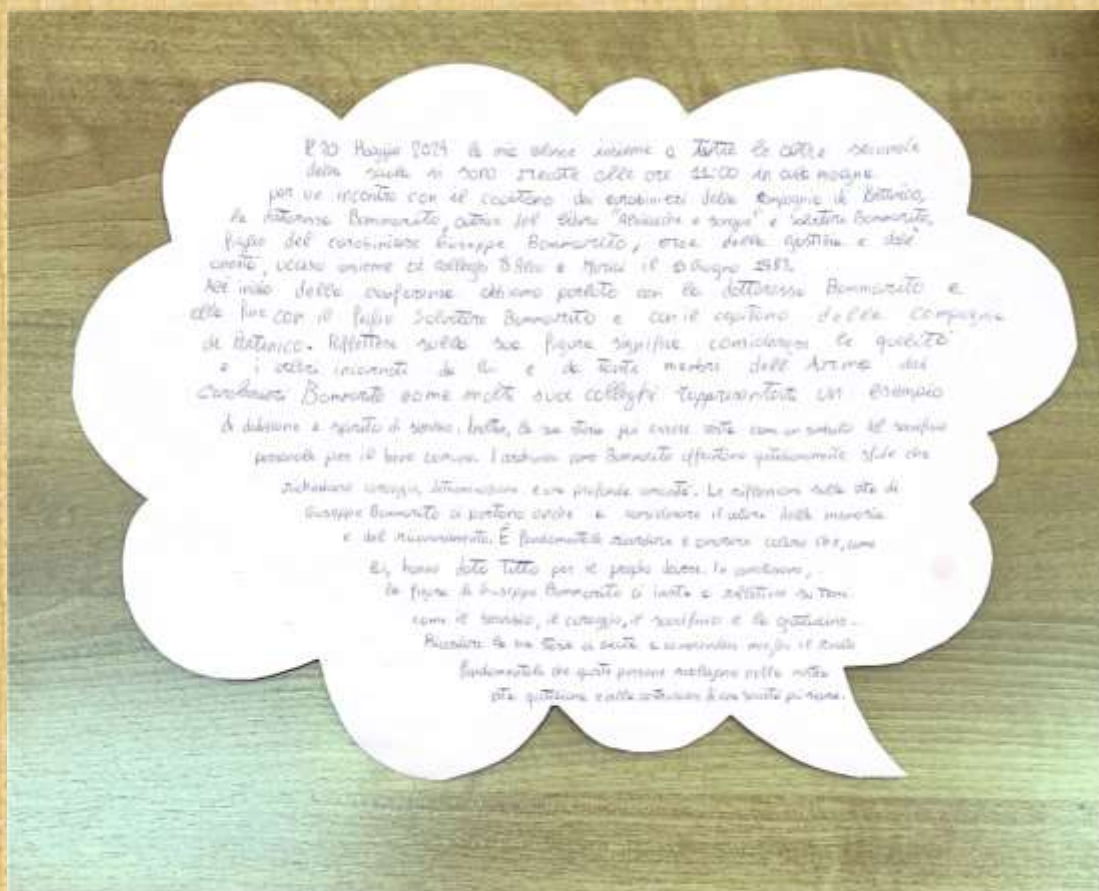 Il 20 Maggio 2024 la mia classe insieme a tutte le altre seconde
della scuola si sono recate alle ore 11:00 in aula magna
per un incontro con il capitano dei carabinieri della compagnia di Partinico,
la dottoressa Bommarito, del libro " e sangue" e Salvatore Bommarito,
figlio del carabiniere Giuseppe Bommarito, eroe della giustizia e dell'
onestà, ucciso insieme ai colleghi D'Aleo e Morici il 13 Giugno 1983.
All'inizio della conferenza abbiamo parlato con la dottoressa Bommarito e
alla fine con il figlio Salvatore Bommarito e con il capitano della compagnia
di Partinico. Riflettere sulla sua figura significa considerare le qualità
e i valori incarnati da lui e da tanti membri dell'Arma dei
Carabinieri Bommarito come molti suoi colleghi rappresentava un esempio
di dedizione e spirito di servizio. Inoltre, la sua storia può essere vista come un simbolo del sacrificio
personale per il bene comune. I carabinieri come Bommarito affrontano quotidianamente sfide che
richiedono coraggio, determinazione e una profonda umanità. Le riflessioni sulla vita di
Giuseppe Bommarito ci portano anche a considerare il valore della memoria
e del riconoscimento. È fondamentale ricordare e onorare coloro che, come
lui, hanno dato tutto per il proprio dovere. In conclusione,
la figura di Giuseppe Bommarito ci invita a riflettere su temi
come il servizio, il coraggio, il sacrificio e la gratitudine.
Ricordare la sua storia ci aiuta a comprendere meglio il ruolo
fondamentale che queste persone svolgono nella nostra
vita quotidiana e alla costruzione di una società più